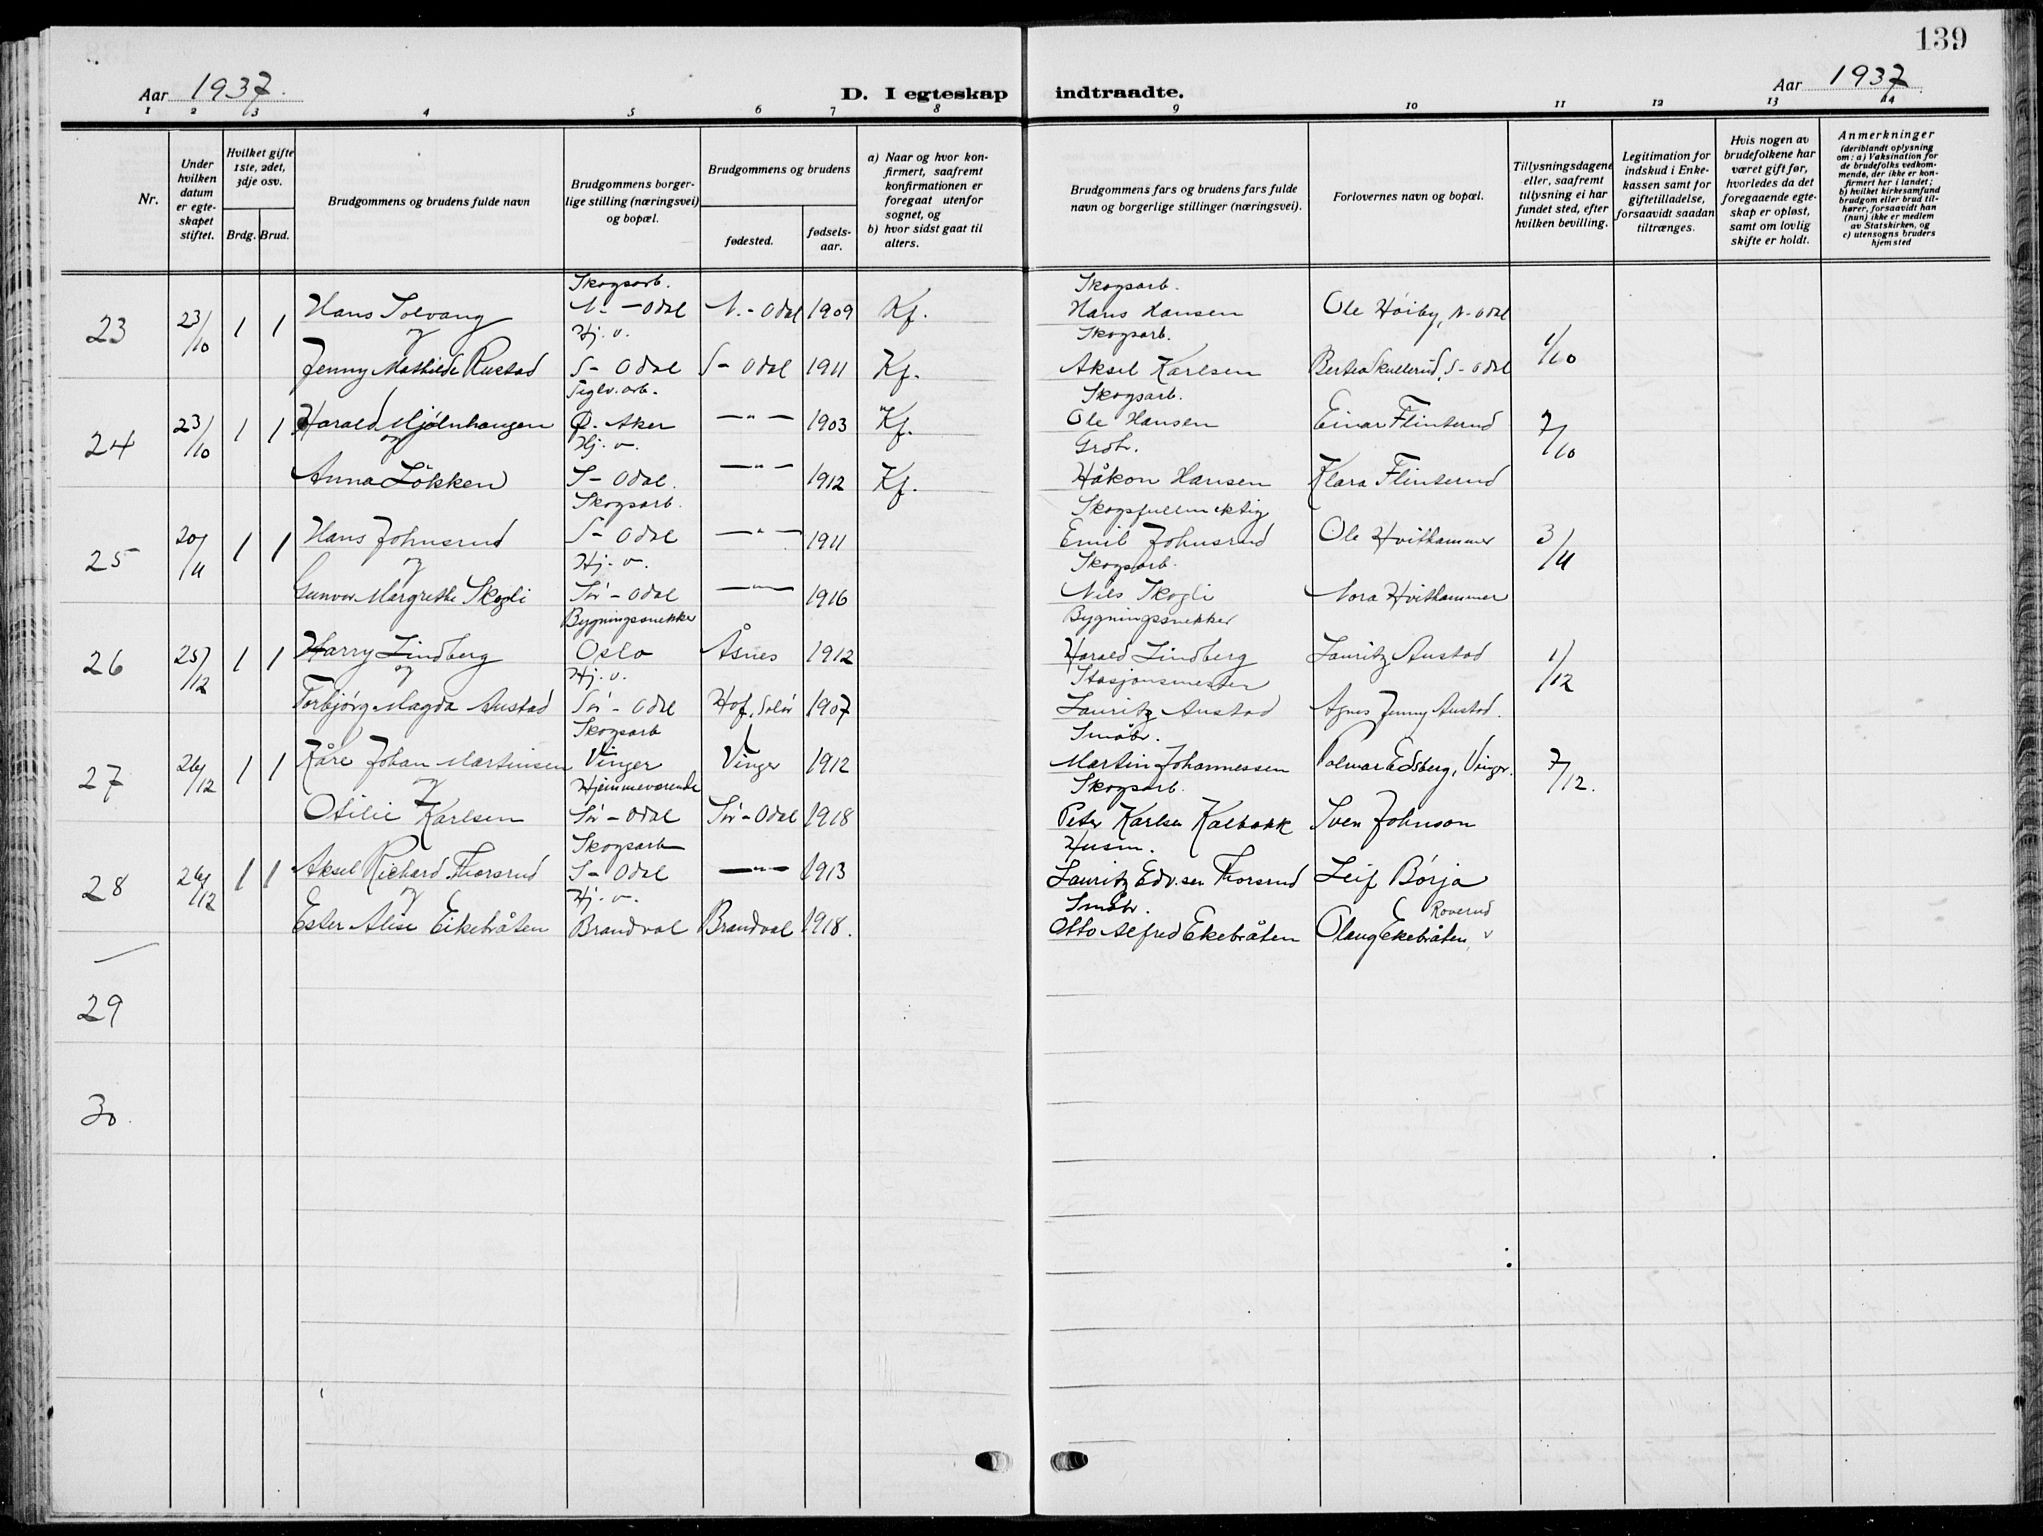 139
Aar 1937.
D. I egteskap indtraadte.
Aar 1937
1 2 3 4 5 6 7 8 9 10 11 12 13 14
Nr.
Under hvilken datum er egteskapet stiftet.
Hvilket gifte 1ste, 2det, 3dje osv.
Brdg. Brud.
Brudgommens og brudens fulde navn
Brudgommens borgerlige stilling (næringsvei) og bopæl.
Brudgommens og brudens
fødested.
fødselsaar.
a) Naar og hvor konfirmert, saafremt konfirmationen er foregaat utenfor sognet, og
b) hvor sidst gaat til alters.
Brudgommens fars og brudens fars fulde navn og borgerlige stillinger (næringsvei).
Forlovernes navn og bopæl.
Tillysningsdagene eller, saafremt tillysning ei har fundet sted, efter hvilken bevilling.
Legitimation for indskud i Enkekassen samt for giftetilladelse, forsaavidt saadan tiltrænges.
Hvis nogen av brudefolkene har været gift før, hvorledes da det foregaaende egteskap er opløst, samt om lovlig skifte er holdt.
Anmerkninger (deriblandt oplysning om: a) Vaksination for de brudefolks vedkommende, der ikke er konfirmert her i landet; b) hvilket kirkesamfund brudgom eller brud tilhører, forsaavidt han (hun) ikke er medlem av Statskirken, og c) utensogns bruders hjemsted
Skogsarb. Skogsarb.
23 23/10 1 1 Hans Solvang N.-Odal N.-Odal 1909 Kf. Hans Hansen Ole Høiby, N-Odal 1/10
og Hj. v. Skogsarb.
Jenny Mathilde Rustad S-Odal S-Odal 1911 Kf. Aksel Karlsen Bertea Skullerud, S-Odal
Teglv.arb. Skogsarb.
24 23/10 1 1 Harald Mjølnhaugen Ø. Aker —"— 1903 Kf. Ole Hansen Einar Flinterud 7/10
og Hj. v. Grbr.
Anna Løkken S-Odal. —"— 1912 Kf. Håkon Hansen Klara Flinterud
Skogsarb. Skogsfullmektig
25 20/11 1 1 Hans Johnsrud S-Odal —"— 1911 Emil Johnsrud Ole Hvithammer 3/11
og Hj. v. Skogsarb.
Gunvor Margrethe Skogli Sør-Odal —"— 1916 Nils Skogli Nora Hvithammer
Bygningssnekker Bygningssnekker
26 25/12 1 1 Harry Lindberg Oslo Åsnes 1912 Harald Lindberg Lauritz Austad 1/12
og Hj. v. Stasjonsmester
Torbjørg Magda Austad Sør-Odal Hof, Solør 1907 Lauritz Austad Agnes Jenny Austad.
Skogsarb Småbr.
27 26/12 1 1 Kåre Johan Martinsen Vinger Vinger 1912 Martin Johannessen Edsberg, Vinger. 7/12.
og Hjemmeværende Skogsarb.
Otilie Karlsen Sør-Odal Sør-Odal 1918 Peter Karlsen Kalbakk Sven Johnson
Skogsarb Husm.
28 26/12 1 1 Aksel Richard Thorsrud S-Odal —"— 1913 Lauritz Edv.sen Thorsrud Leif Børja
og Hj. v. Småbr. Roverud
Ester Alise Eikebråten Brandval Brandval 1918. Otto Alfred Ekebråten Olaug Ekebråten, v
29
30.